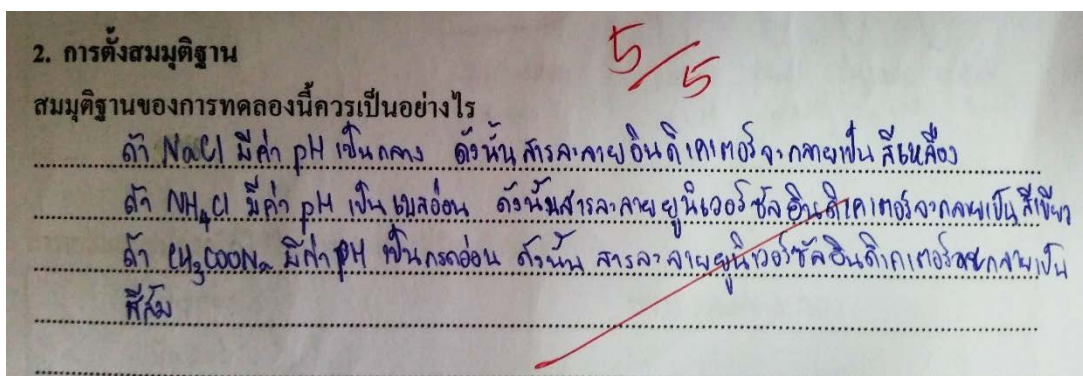 2. การตั้งสมมุติฐาน
5/5
สมมุติฐานของการทดลองนี้ควรเป็นอย่างไร
ถ้า NaCl มีค่า pH เป็นกลาง ดังนั้นสารละลายอินดิเคเตอร์จะกลายเป็นสีเหลือง
ถ้า NH4Cl มีค่า pH เป็นเบสอ่อน ดังนั้นสารละลายยูนิเวอร์ซัลอินดิเคเตอร์จะกลายเป็นสีเขียว
ถ้า CH3COONa มีค่า pH เป็นกรดอ่อน ดังนั้น สารละลายยูนิเวอร์ซัลอินดิเคเตอร์จะกลายเป็น
สีส้ม